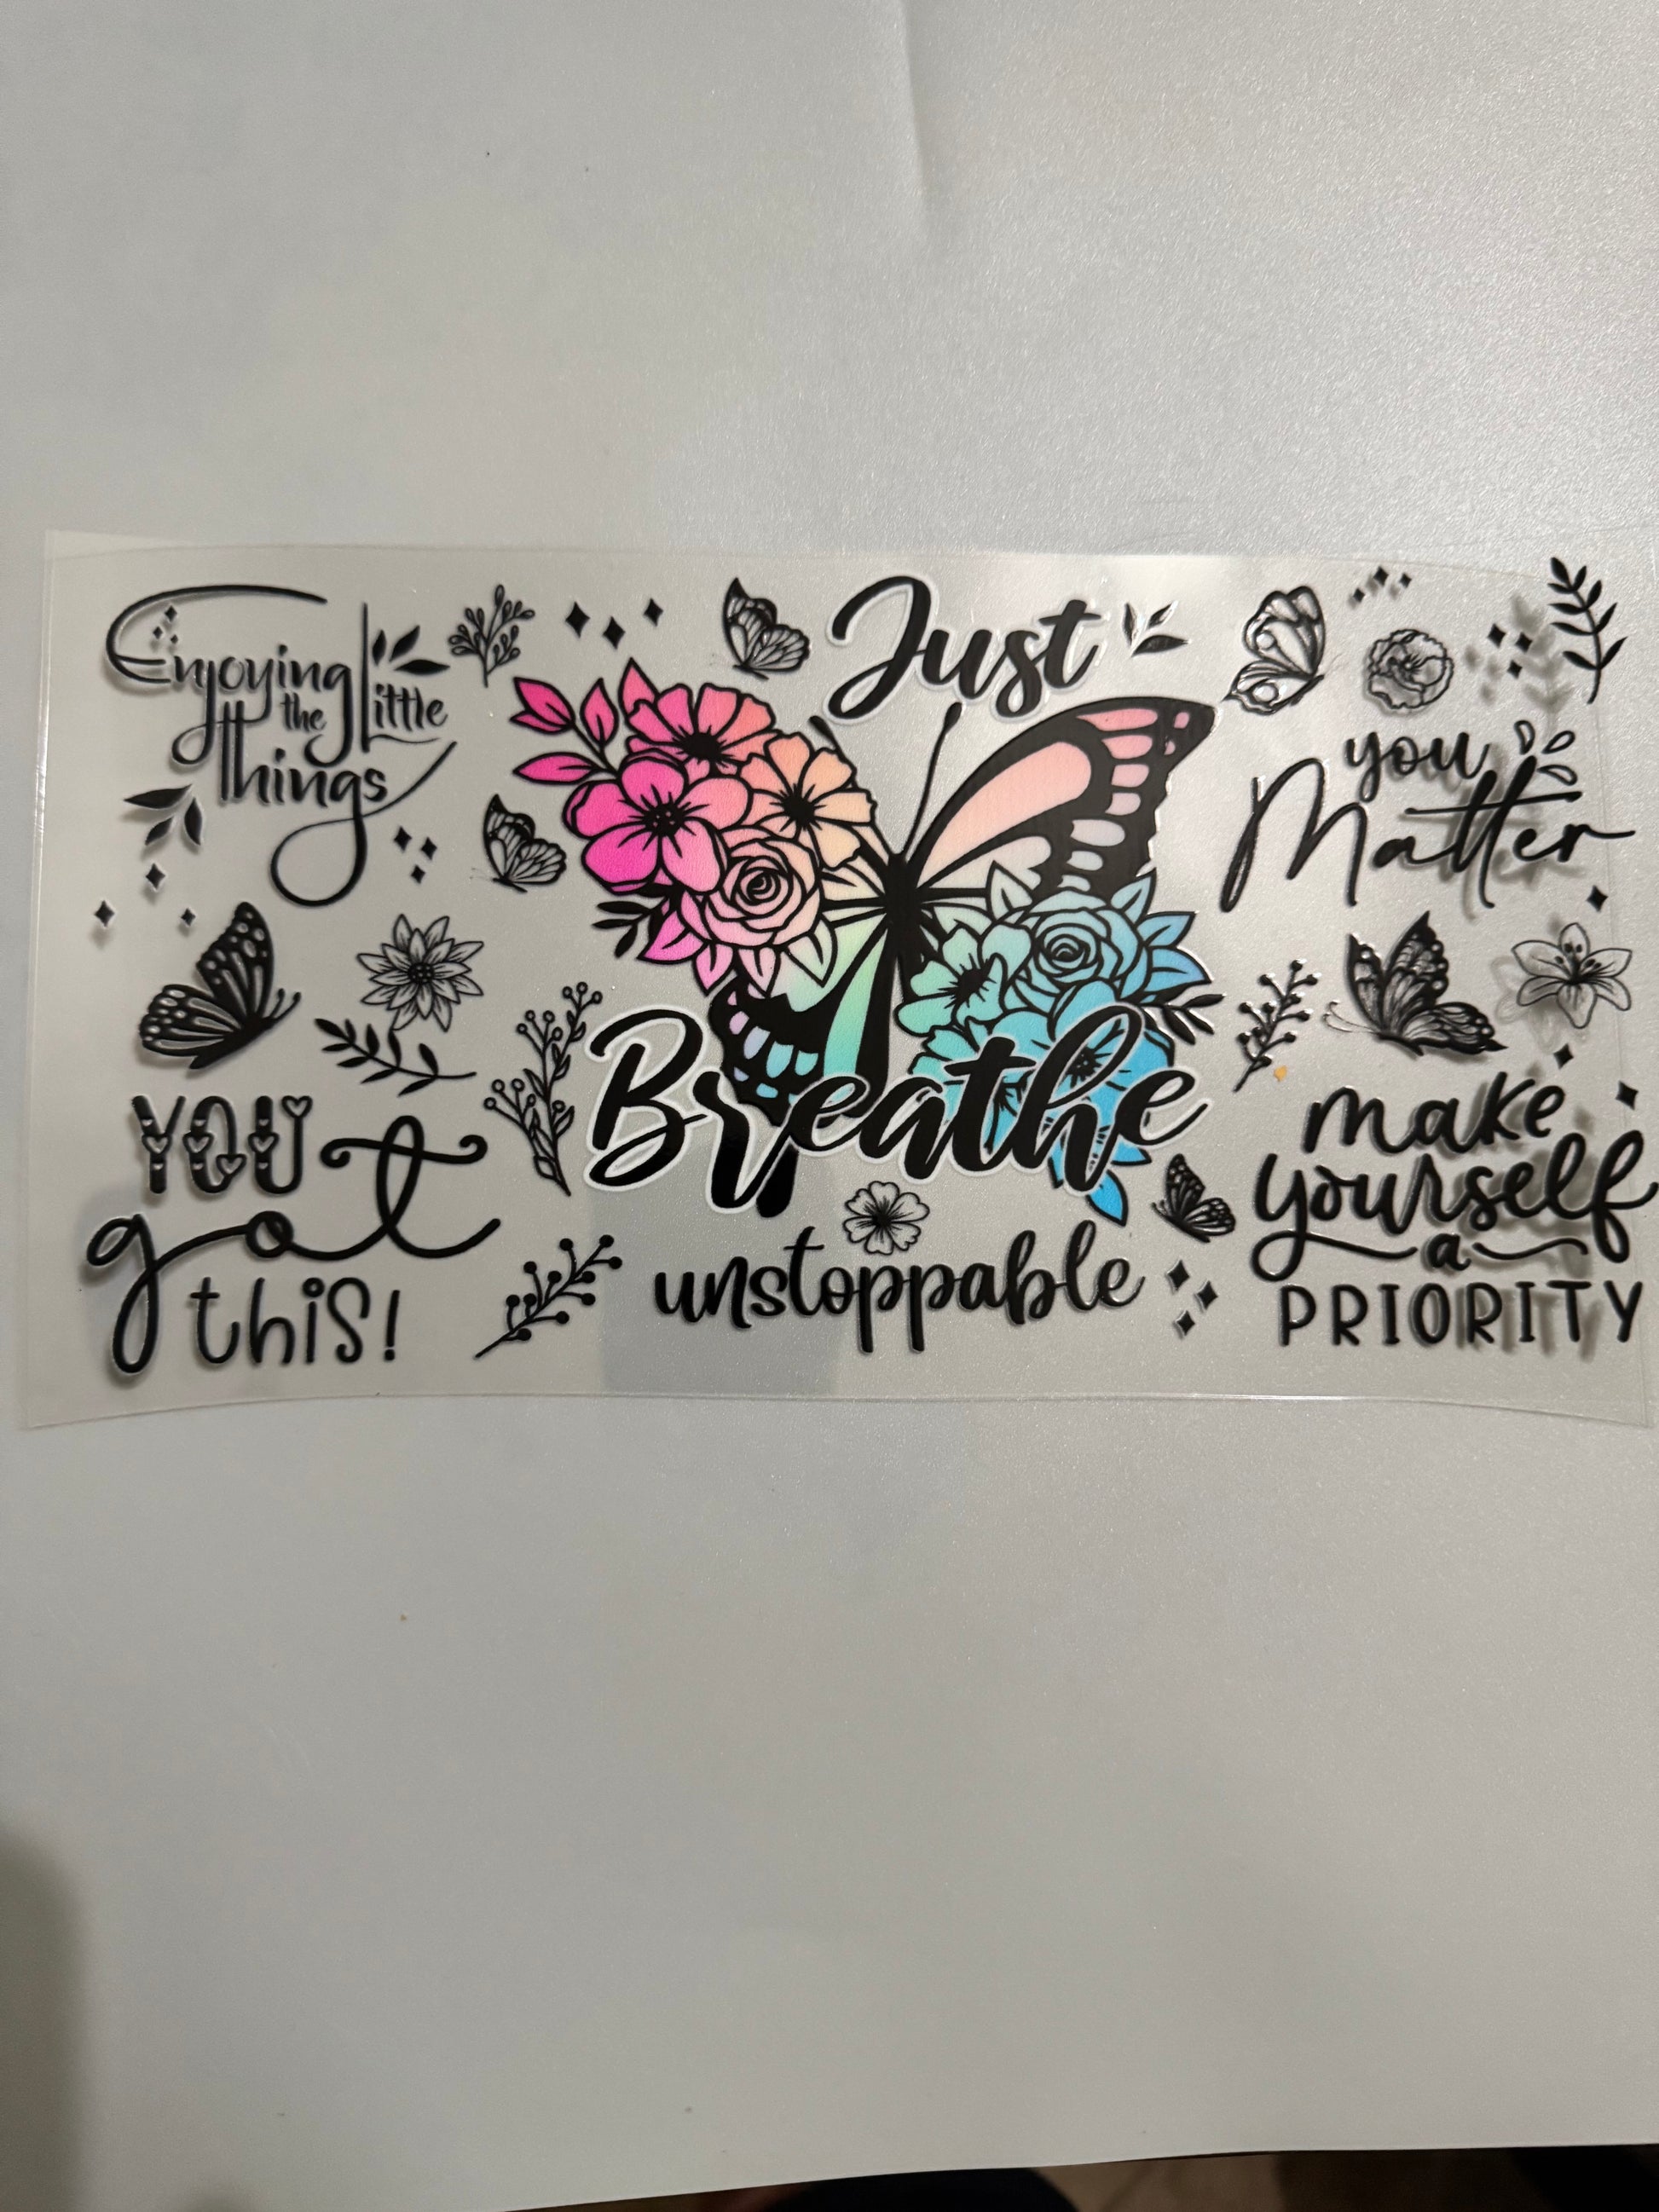 Enjoying
the Little
things
Just
Breathe
you
Matter
YOU
got
this!
unstoppable
make
yourself
a
PRIORITY